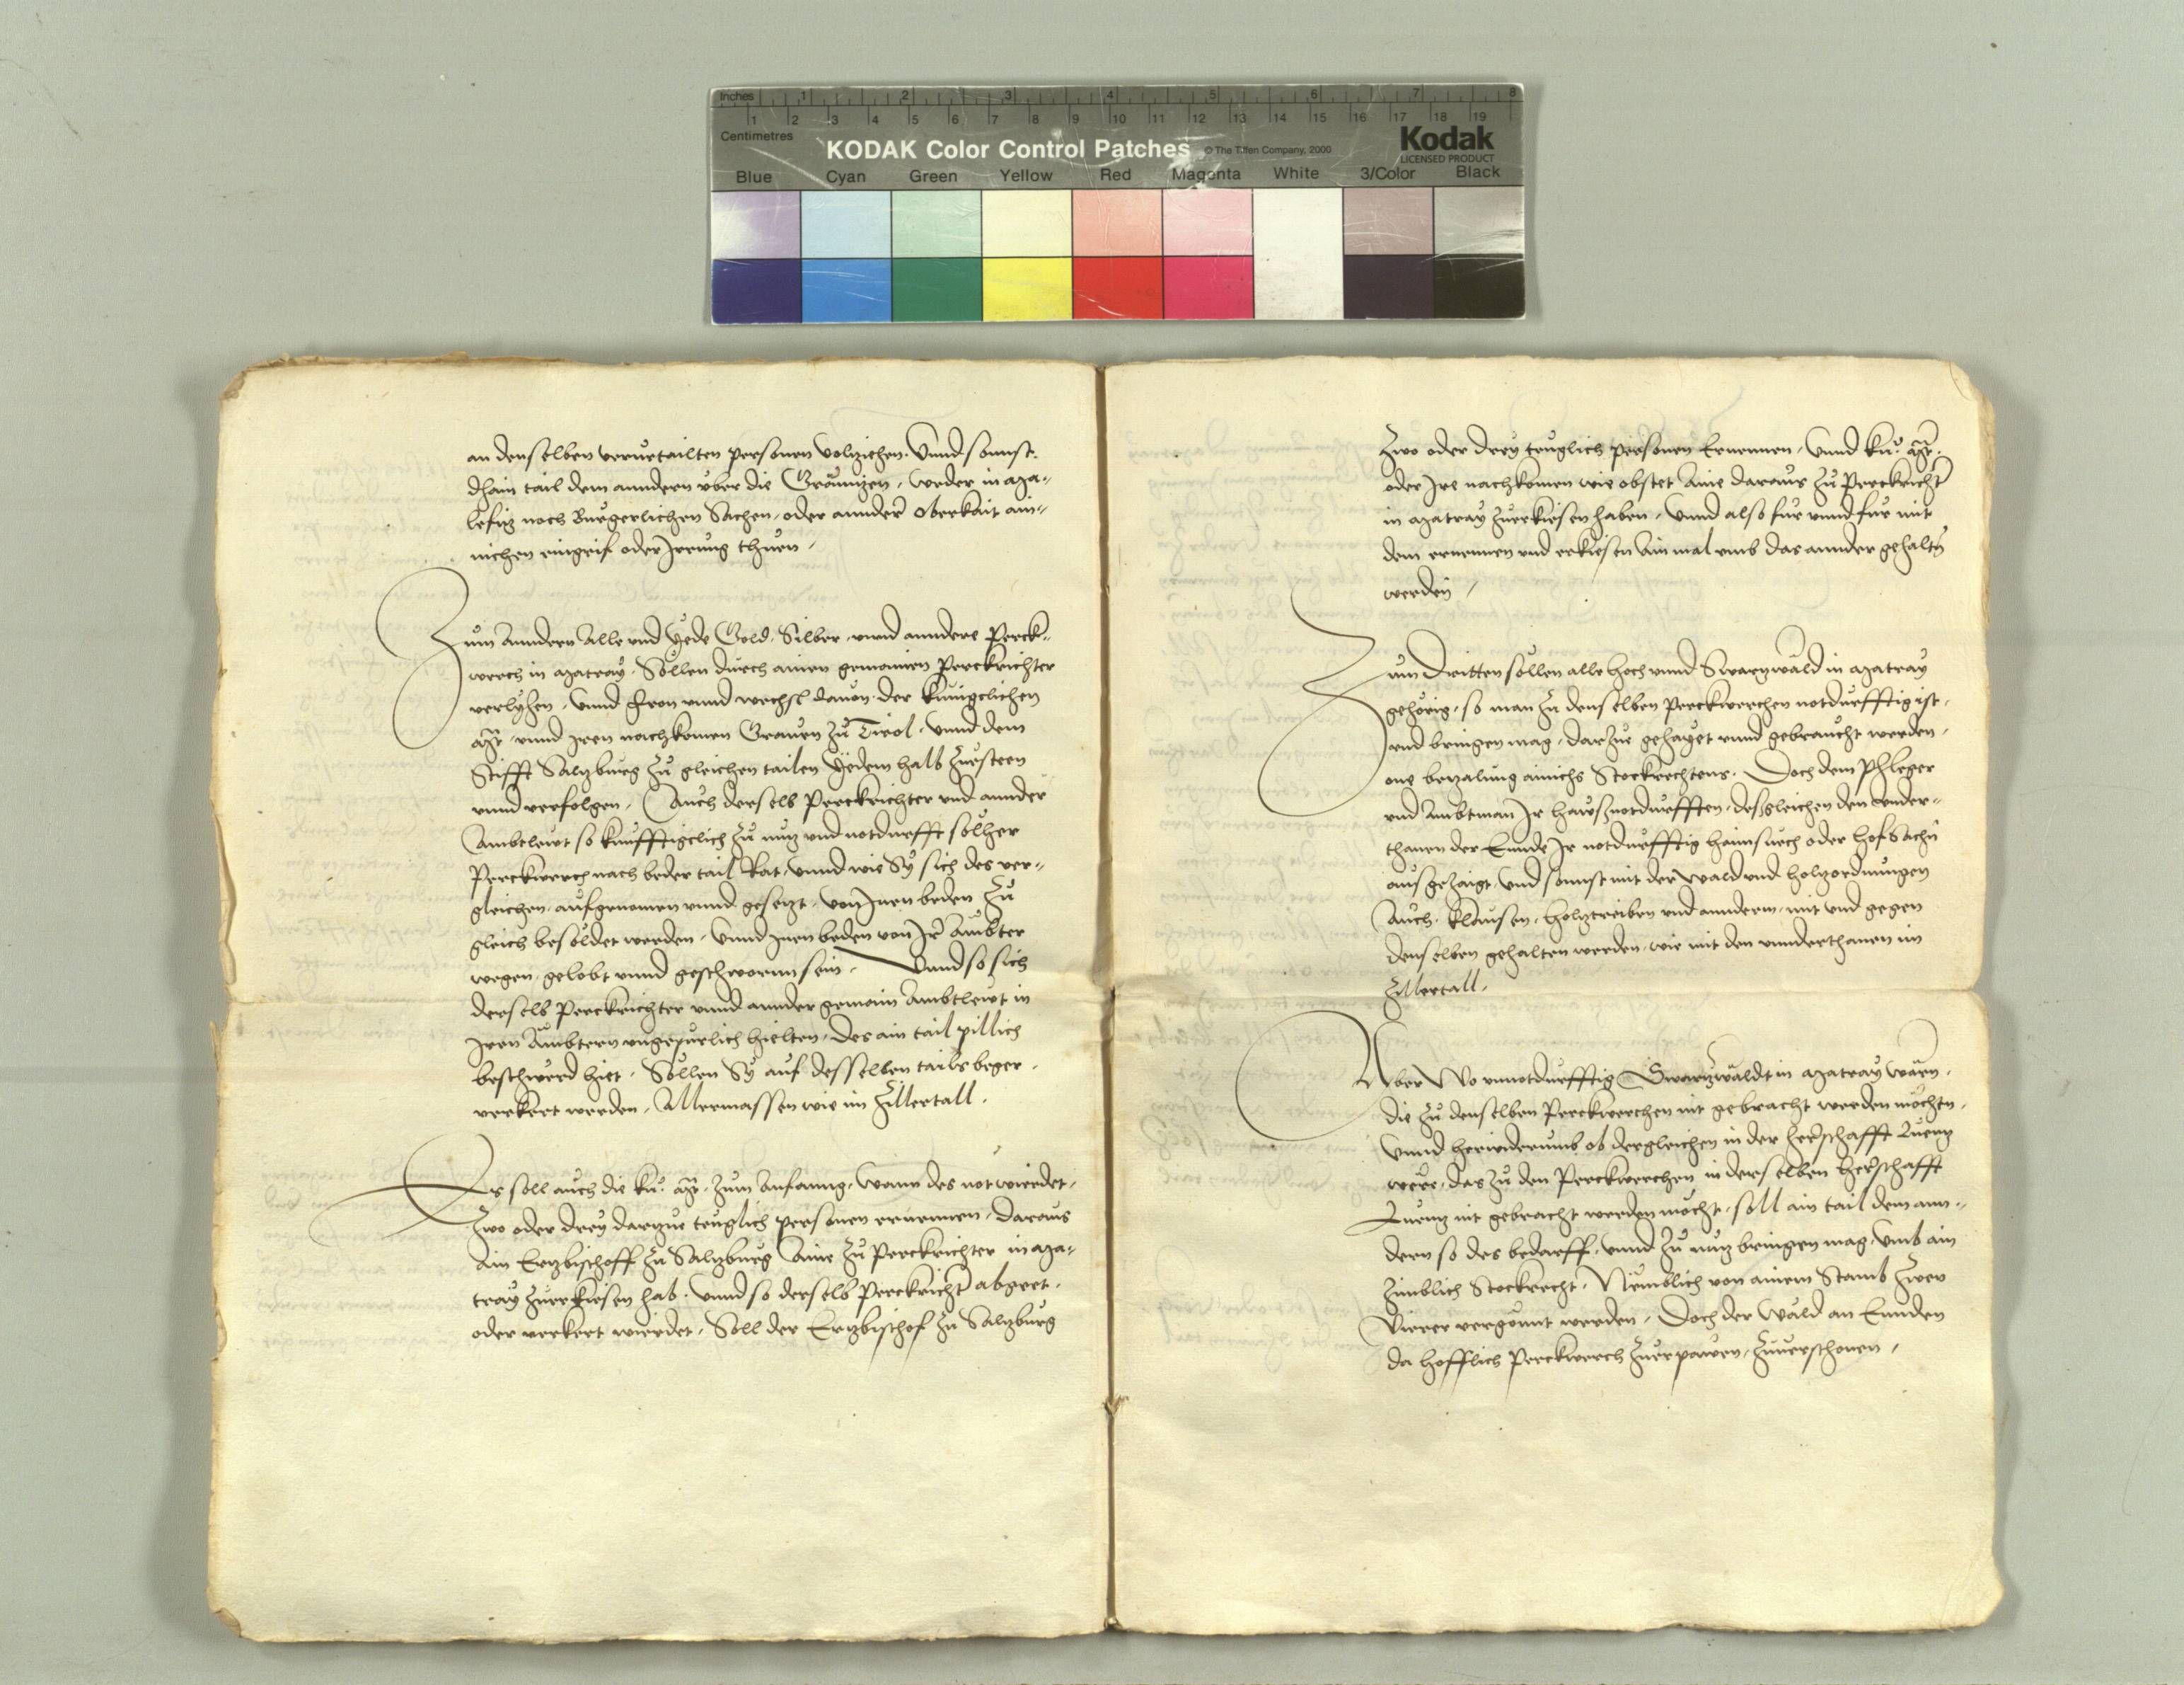 Inches 1 2 3 4 5 6 7 8
1 2 3 4 5 6 7 8 9 10 11 12 13 14 15 16 17 18 19
Centimetres
KODAK Color Control Patches © The Tiffen Company, 2000
Kodak
LICENSED PRODUCT
Blue Cyan Green Yellow Red Magenta White 3/Color Black
an denselben verurtailten personen volziehen. Unnd sonnst.
dhain tail dem anndern uber die Gränntzen, weder in Ma-
lefitz noch Burgerlichen Sachen, oder annder oberkait ain-
nichen eingrif oder Irrung thuen,
Zum Anndern Alle und yede Gold, Silber, unnd anndere Perck-
werch in Matray, Söllen durch ainen gemainen Perckrichter
verlyhen, Unnd Fron unnd wechsl davon, der künigclichen
Mt. unnd Iren nachkomen Graven zu Tirol, Unnd dem
Stifft Saltzburg zu gleichen tailen yedem halb zuesteen
unnd verfolgen, Auch derselb Perckrichter und annder
Ambtlewt so kunfftigclich zu nutz und notdurfft solher
Perckwerch nach beder tail Rat, unnd wie Sy sich des ver-
gleichen, aufgenomen unnd gesetzt, von Inen beden zu
gleich besoldet werden, Unnd Inen beden von Ir Ämbter
wegen, gelobt unnd geschworn sein. Unnd so sich
derselb Perckrichter unnd annder gemain Ambtlewt in
Iren Ämbtern ungepürlich hielten, des ain tail pillich
beschwerd hiet, Sollen Sy auf desselben tails beger,
verkert werden, Allermassen wie im Zillertall.
Es soll auch die Kü. Mt. zum Anfanng, Wann des not wierdet,
Zwo oder drey dartzue teuglich personen ernennen, daraus
Ain Ertzbischoff zu Saltzburg Aine zu Perckrichter in Ma-
tray zuerkiesen hab, Unnd so derselb Perckricht abgeet,
oder verkert wierdet, Soll der Ertzbischof zu Saltzburg
Zwo oder drey teuglich personen Ernennen, Unnd Kü. Mt.
oder Ire nachkomen wie obstet Aine daraus zu Perckricht
in Matray zuerkiesen haben, Unnd also für unnd für mit
dem ernennen und erkiesen Ain mal umb das annder gehaltn
werden,
Zum Dritten sollen alle hoch unnd Swartzwäld in Matray
gehörig, so man zu denselben Perckwerchen notdürfftig ist,
und bringen mag, darzue gehayet unnd gebraucht werden,
one betzalung ainichs Stockrechtens. Doch dem Phleger
und Ambtman Ir hawsznotdurfften, desgleichen den Under-
thanen der Ennde Ir notdurfftig haimsuech oder hof Sachn
ausgezaigt, Und sonnst mit der Wald und holtzordnungen
Auch, Klausen, holtztreiben und annderm, mit und gegen
denselben gehalten werden, wie mit den unnderthanen im
Zillertall.
Aber Wo unnotdurfftig Swartzwäldt in Matray wärn,
die zu denselben Perckwerchen nit gebracht werden möchten,
Unnd herwiderumb ob dergleichen in der Herschafft Luentz
were, das zu den Perckwerchen in derselben Herschafft
Luentz nit gebracht werden möcht, soll ain tail dem ann-
dern so des bedarff, unnd zu nutz bringen mag, Umb ain
zimblich Stockrecht, Nemblich von ainem Stamb zwen
Vierer vergönnt werden, Doch der Wäld an Ennden
da hofflich Perckwerch zuerpawen, zuverschonen,